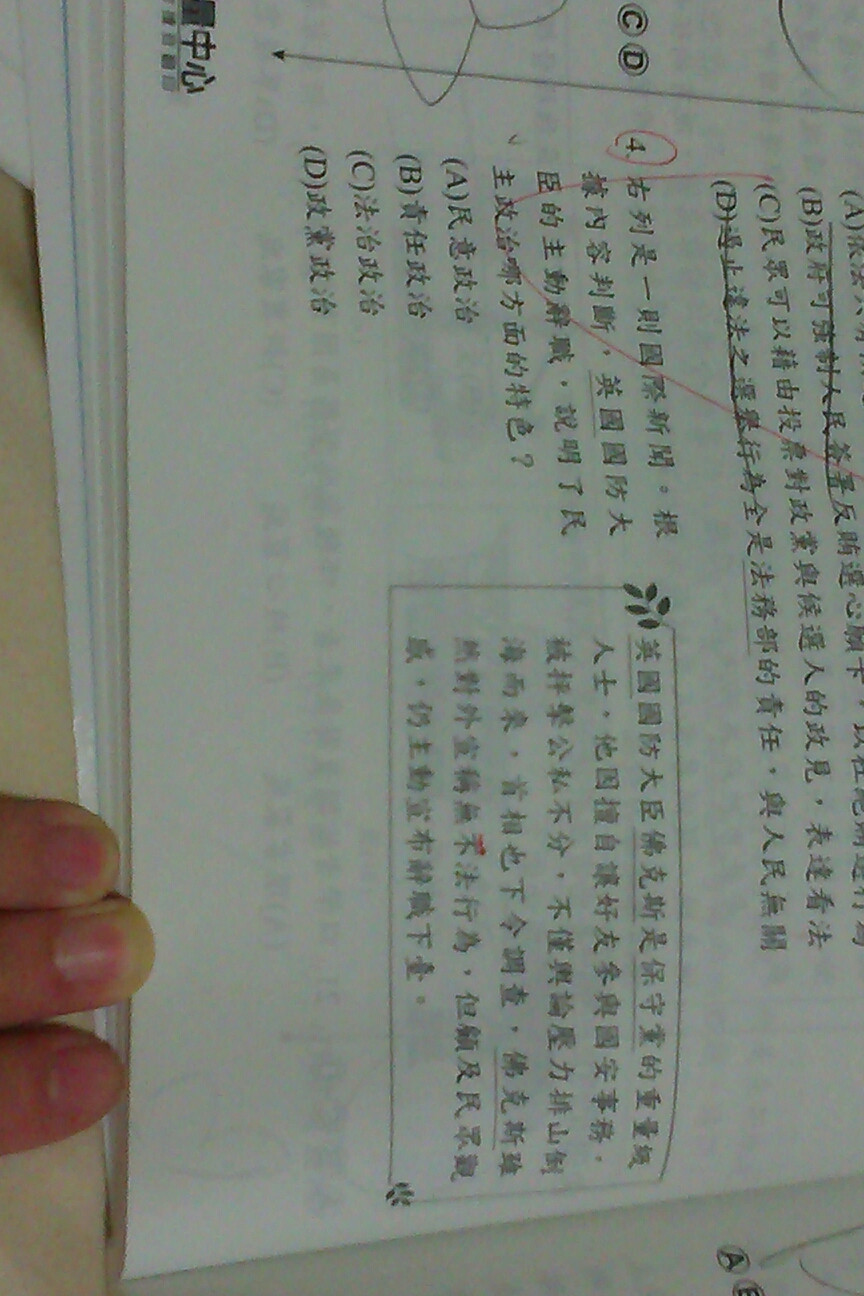 (B)政府可強制人民簽署反賄選心願卡
(C)民眾可以藉由投票對政黨與候選人的政見，表達看法
(D)遏止違法之選舉行為全是法務部的責任，與人民無關
4 右列是一則國際新聞。根
據內容判斷，英國國防大
臣的主動辭職，說明了民
主政治哪方面的特色？
(A)民意政治
(B)責任政治
(C)法治政治
(D)政黨政治
英國國防大臣佛克斯是保守黨的重量級
人士，他因擅自讓好友參與國安事務，
被抨擊公私不分，不僅輿論壓力排山倒
海而來，首相也下令調查，佛克斯雖
然對外宣稱無不法行為，但顧及民眾觀
感，仍主動宣布辭職下臺。
Ⓒ Ⓓ
量中心
Ⓐ